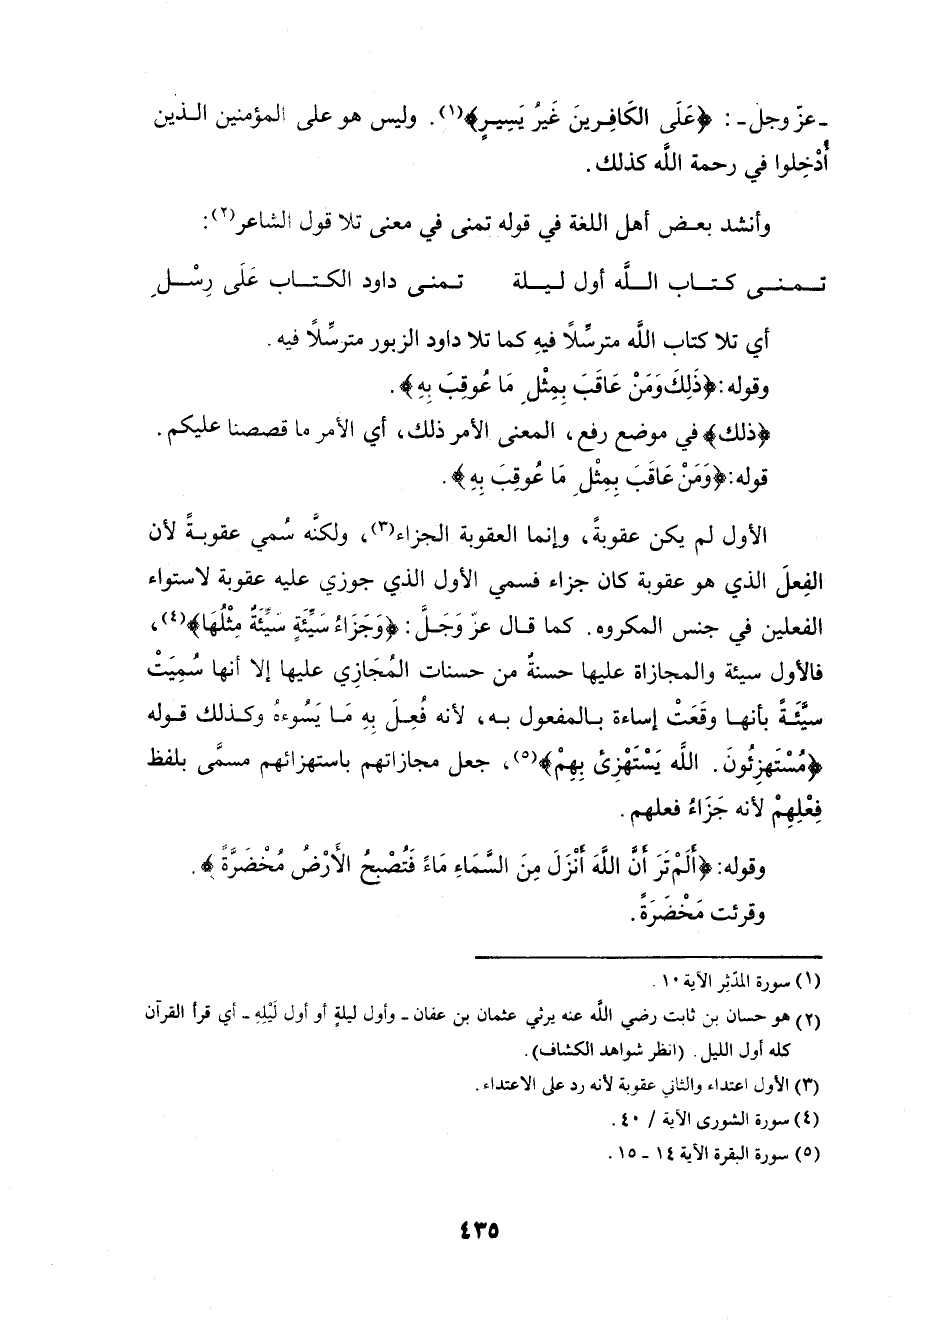 ـ عزّ وجل ـ : ﴿عَلَى الكَافِرِينَ غَيْرُ يَسِيرٍ﴾(١). وليس هو على المؤمنين الذين
أُدْخِلوا في رحمة اللَّه كذلك.
وأنشد بعض أهل اللغة في قوله تمنى في معنى تلا قول الشاعر(٢):
تمنى كتاب اللَّه أول ليلة تمنى داود الكتاب عَلَى رِسْلِ
أي تلا كتاب اللَّه مترسِّلًا فيهِ كما تلا داود الزبور مترسِّلًا فيه.
وقوله: ﴿ذَلِكَ وَمَنْ عَاقَبَ بِمِثْلِ مَا عُوقِبَ بِهِ﴾.
﴿ذلك﴾ في موضع رفع، المعنى الأمر ذلك، أي الأمر ما قصصنا عليكم.
قوله: ﴿وَمَنْ عَاقَبَ بِمِثْلِ مَا عُوقِبَ بِهِ﴾.
الأول لم يكن عقوبةً، وإنما العقوبة الجزاء(٣)، ولكنَّه سُمي عقوبةً لأن
الفِعلَ الذي هو عقوبة كان جزاء فسمي الأول الذي جوزي عليه عقوبة لاستواء
الفعلين في جنس المكروه. كما قال عزّ وَجَلَّ: ﴿وَجَزَاءُ سَيِّئَةٍ سَيِّئَةٌ مِثْلُهَا﴾(٤)،
فالأول سيئة والمجازاة عليها حسنةٌ من حسنات المُجَازِي عليها إلا أنها سُمِيَتْ
سيِّئَةً بأنها وقَعَتْ إساءة بالمفعول به، لأنه فُعِلَ بِهِ مَا يَسُوءهُ وكذلك قوله
﴿مُسْتَهزِئُونَ. اللَّه يَسْتَهْزِئ بِهِمْ﴾(٥)، جعل مجازاتهم باستهزائهم مسمَّى بلفظ
فِعْلِهِمْ لأنه جَزَاءُ فعلهم.
وقوله: ﴿أَلَمْ تَرَ أَنَّ اللَّهَ أَنْزَلَ مِنَ السَّمَاءِ مَاءً فَتُصْبِحُ الأَرْضُ مُخْضَرَّةً﴾.
وقرئت مَخْضَرَةً.
(١) سورة المدّثر الآية ١٠.
(٢) هو حسان بن ثابت رضي اللَّه عنه يرثي عثمان بن عفان ـ وأول ليلةٍ أو أول لَيْلِهِ ـ أي قرأ القرآن
كله أول الليل. (انظر شواهد الكشاف).
(٣) الأول اعتداء والثاني عقوبة لأنه رد على الاعتداء.
(٤) سورة الشورى الآية / ٤٠.
(٥) سورة البقرة الآية ١٤ ـ ١٥.
٤٣٥